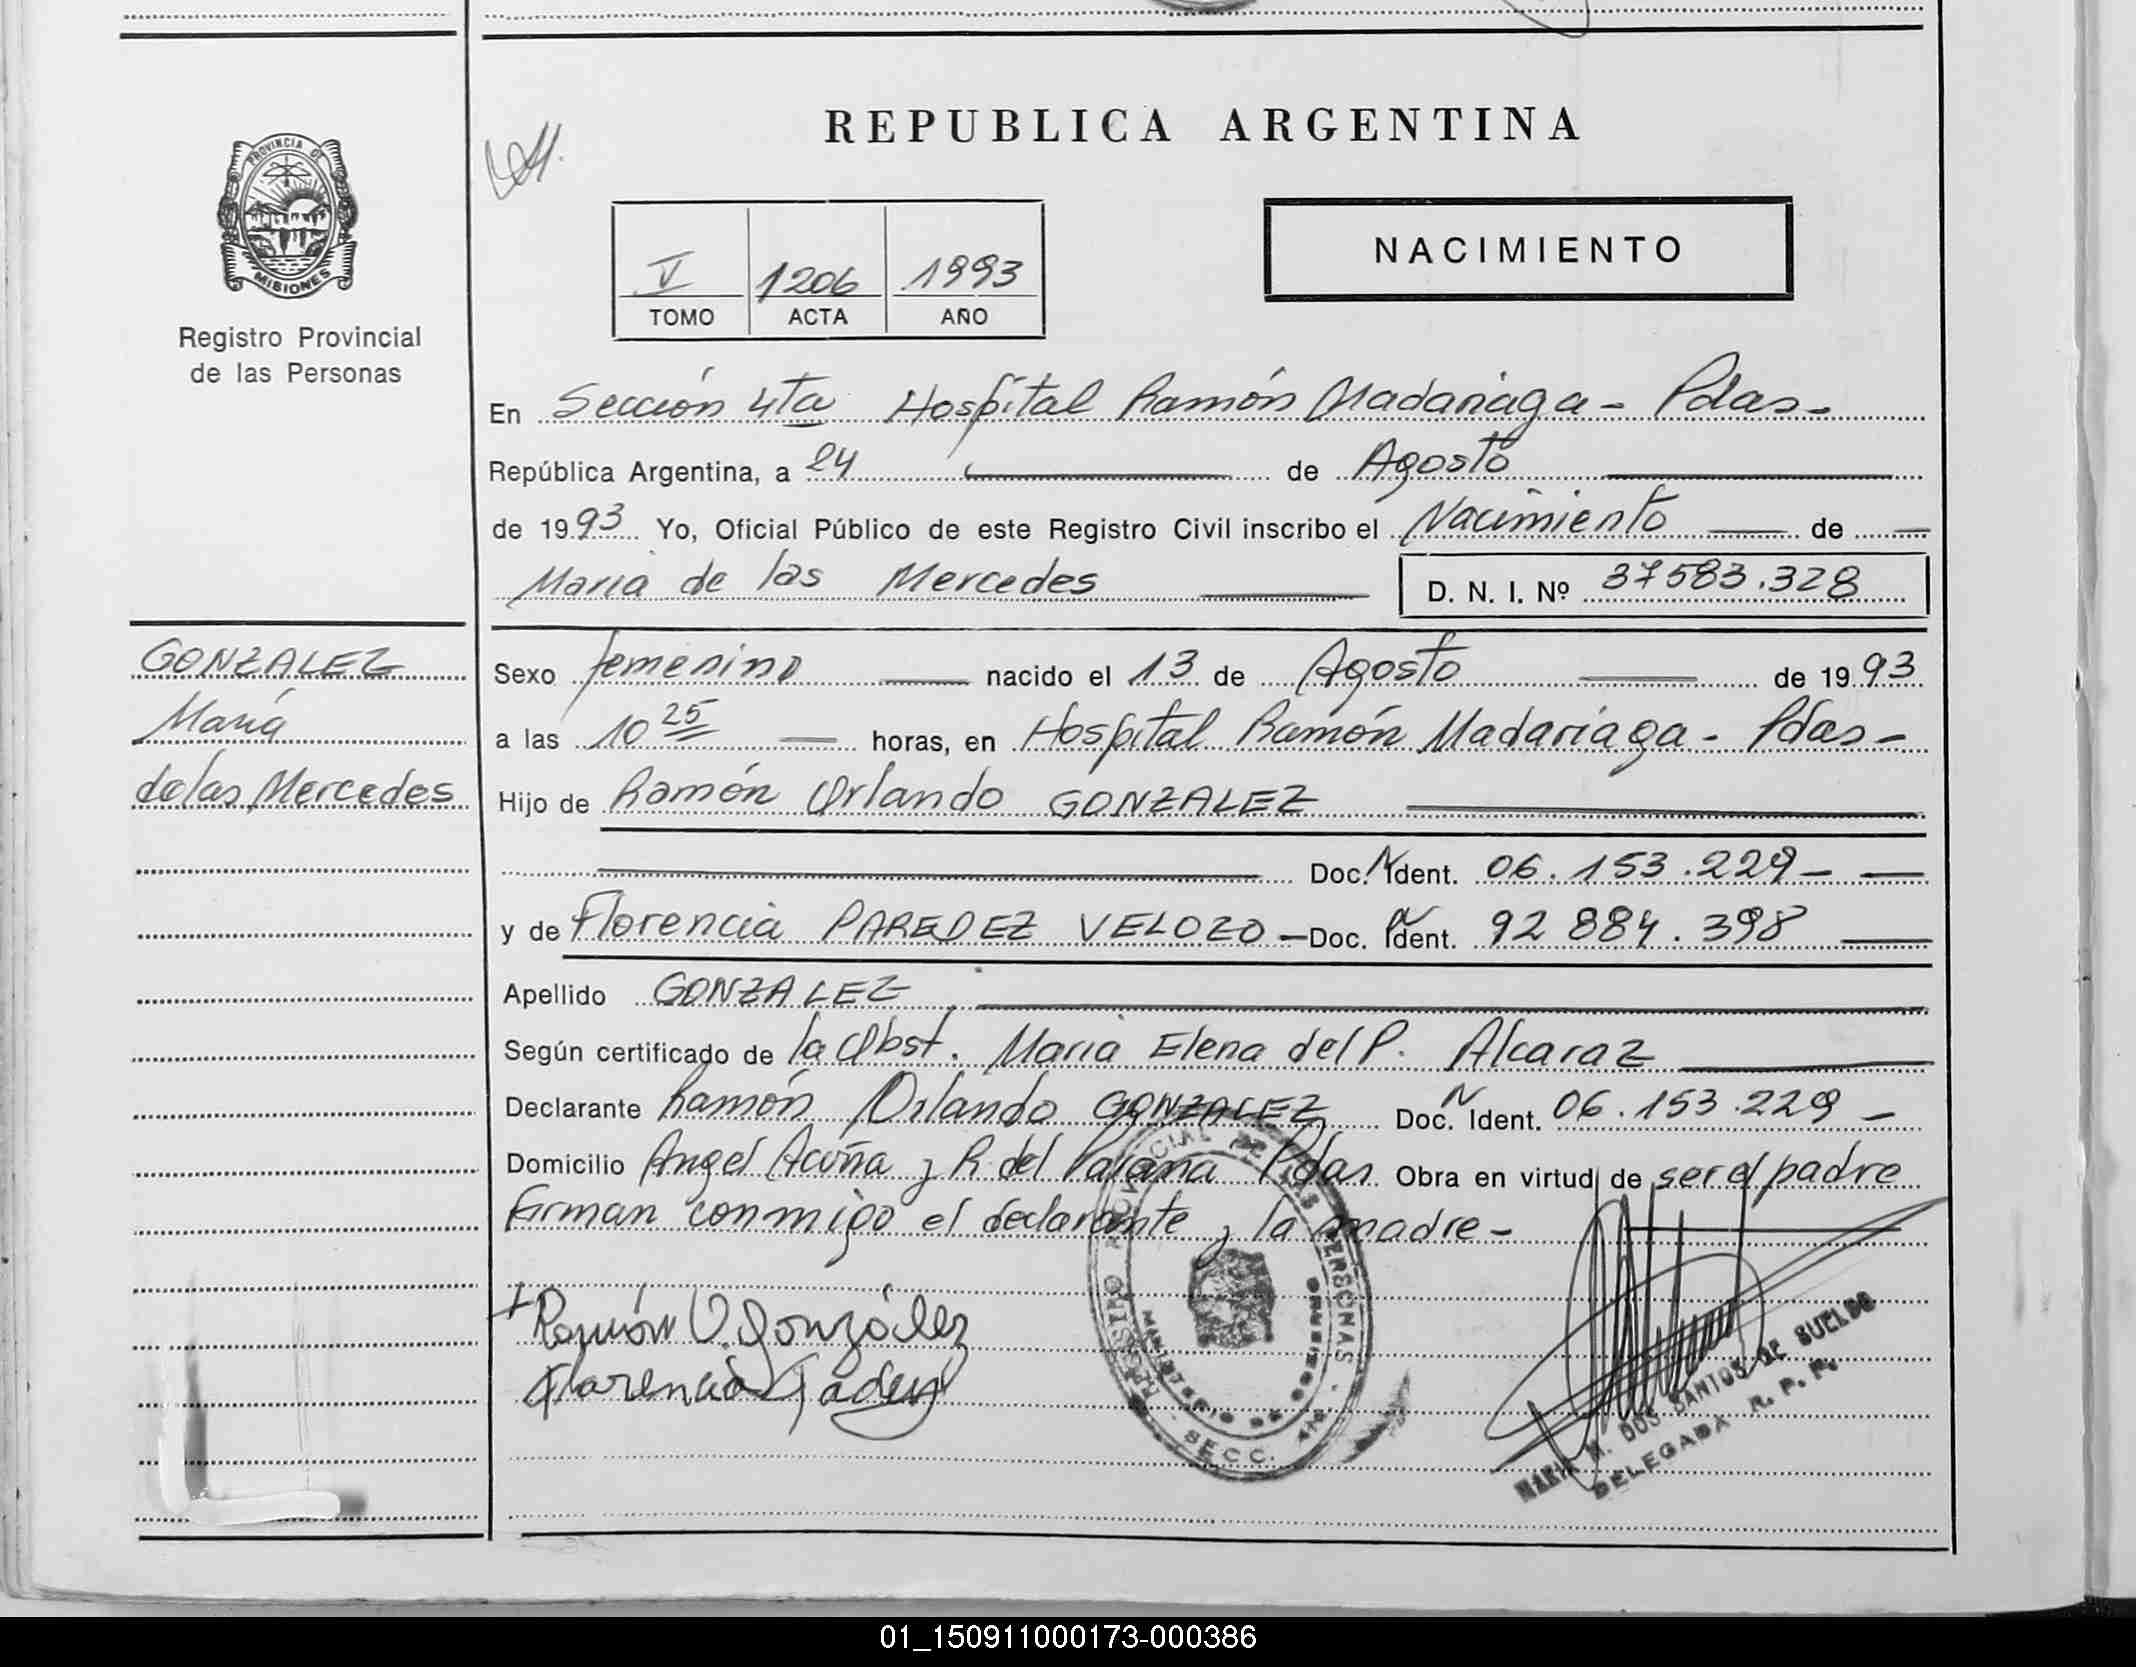 REPUBLICA ARGENTINA
PROVINCIA DE
MISIONES
Registro Provincial
de las Personas
V 1206 1993
TOMO ACTA AÑO
NACIMIENTO
En Sección 4ta Hospital Ramón Madariaga - Pdas -
República Argentina, a 24 de Agosto
de 1993 Yo, Oficial Público de este Registro Civil inscribo el Nacimiento de
María de las Mercedes D. N. I. Nº 37583.328
GONZALEZ
María
de las Mercedes
Sexo femenino nacido el 13 de Agosto de 1993
a las 10 25 horas, en Hospital Ramón Madariaga - Pdas -
Hijo de Ramón Orlando GONZALEZ
Doc. N Ident. 06.153.229 -
y de Florencia PAREDEZ VELOZO - Doc. N Ident. 92 884.398
Apellido GONZALEZ
Según certificado de la Obst. Maria Elena del P. Alcaraz
Declarante Ramón Orlando GONZALEZ Doc. N Ident. 06.153.229 -
Domicilio Angel Acuña y R. del Paraná Pdas Obra en virtud de ser el padre
firman conmigo el declarante y la madre -
Ramón O. González
Florencia
REGISTRO PROVINCIAL DE LAS PERSONAS
SECC. 4ta
MARIA M. DOS SANTOS DE SUELDO
DELEGADA R. P. P.
01_150911000173-000386